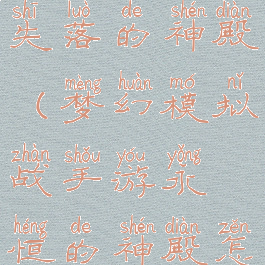 shī luò de shén diàn
失落的神殿
mèng huàn mó nǐ
（梦幻模拟
zhàn shǒu yóu yǒng
战手游永
héng de shén diàn zěn
恒的神殿怎